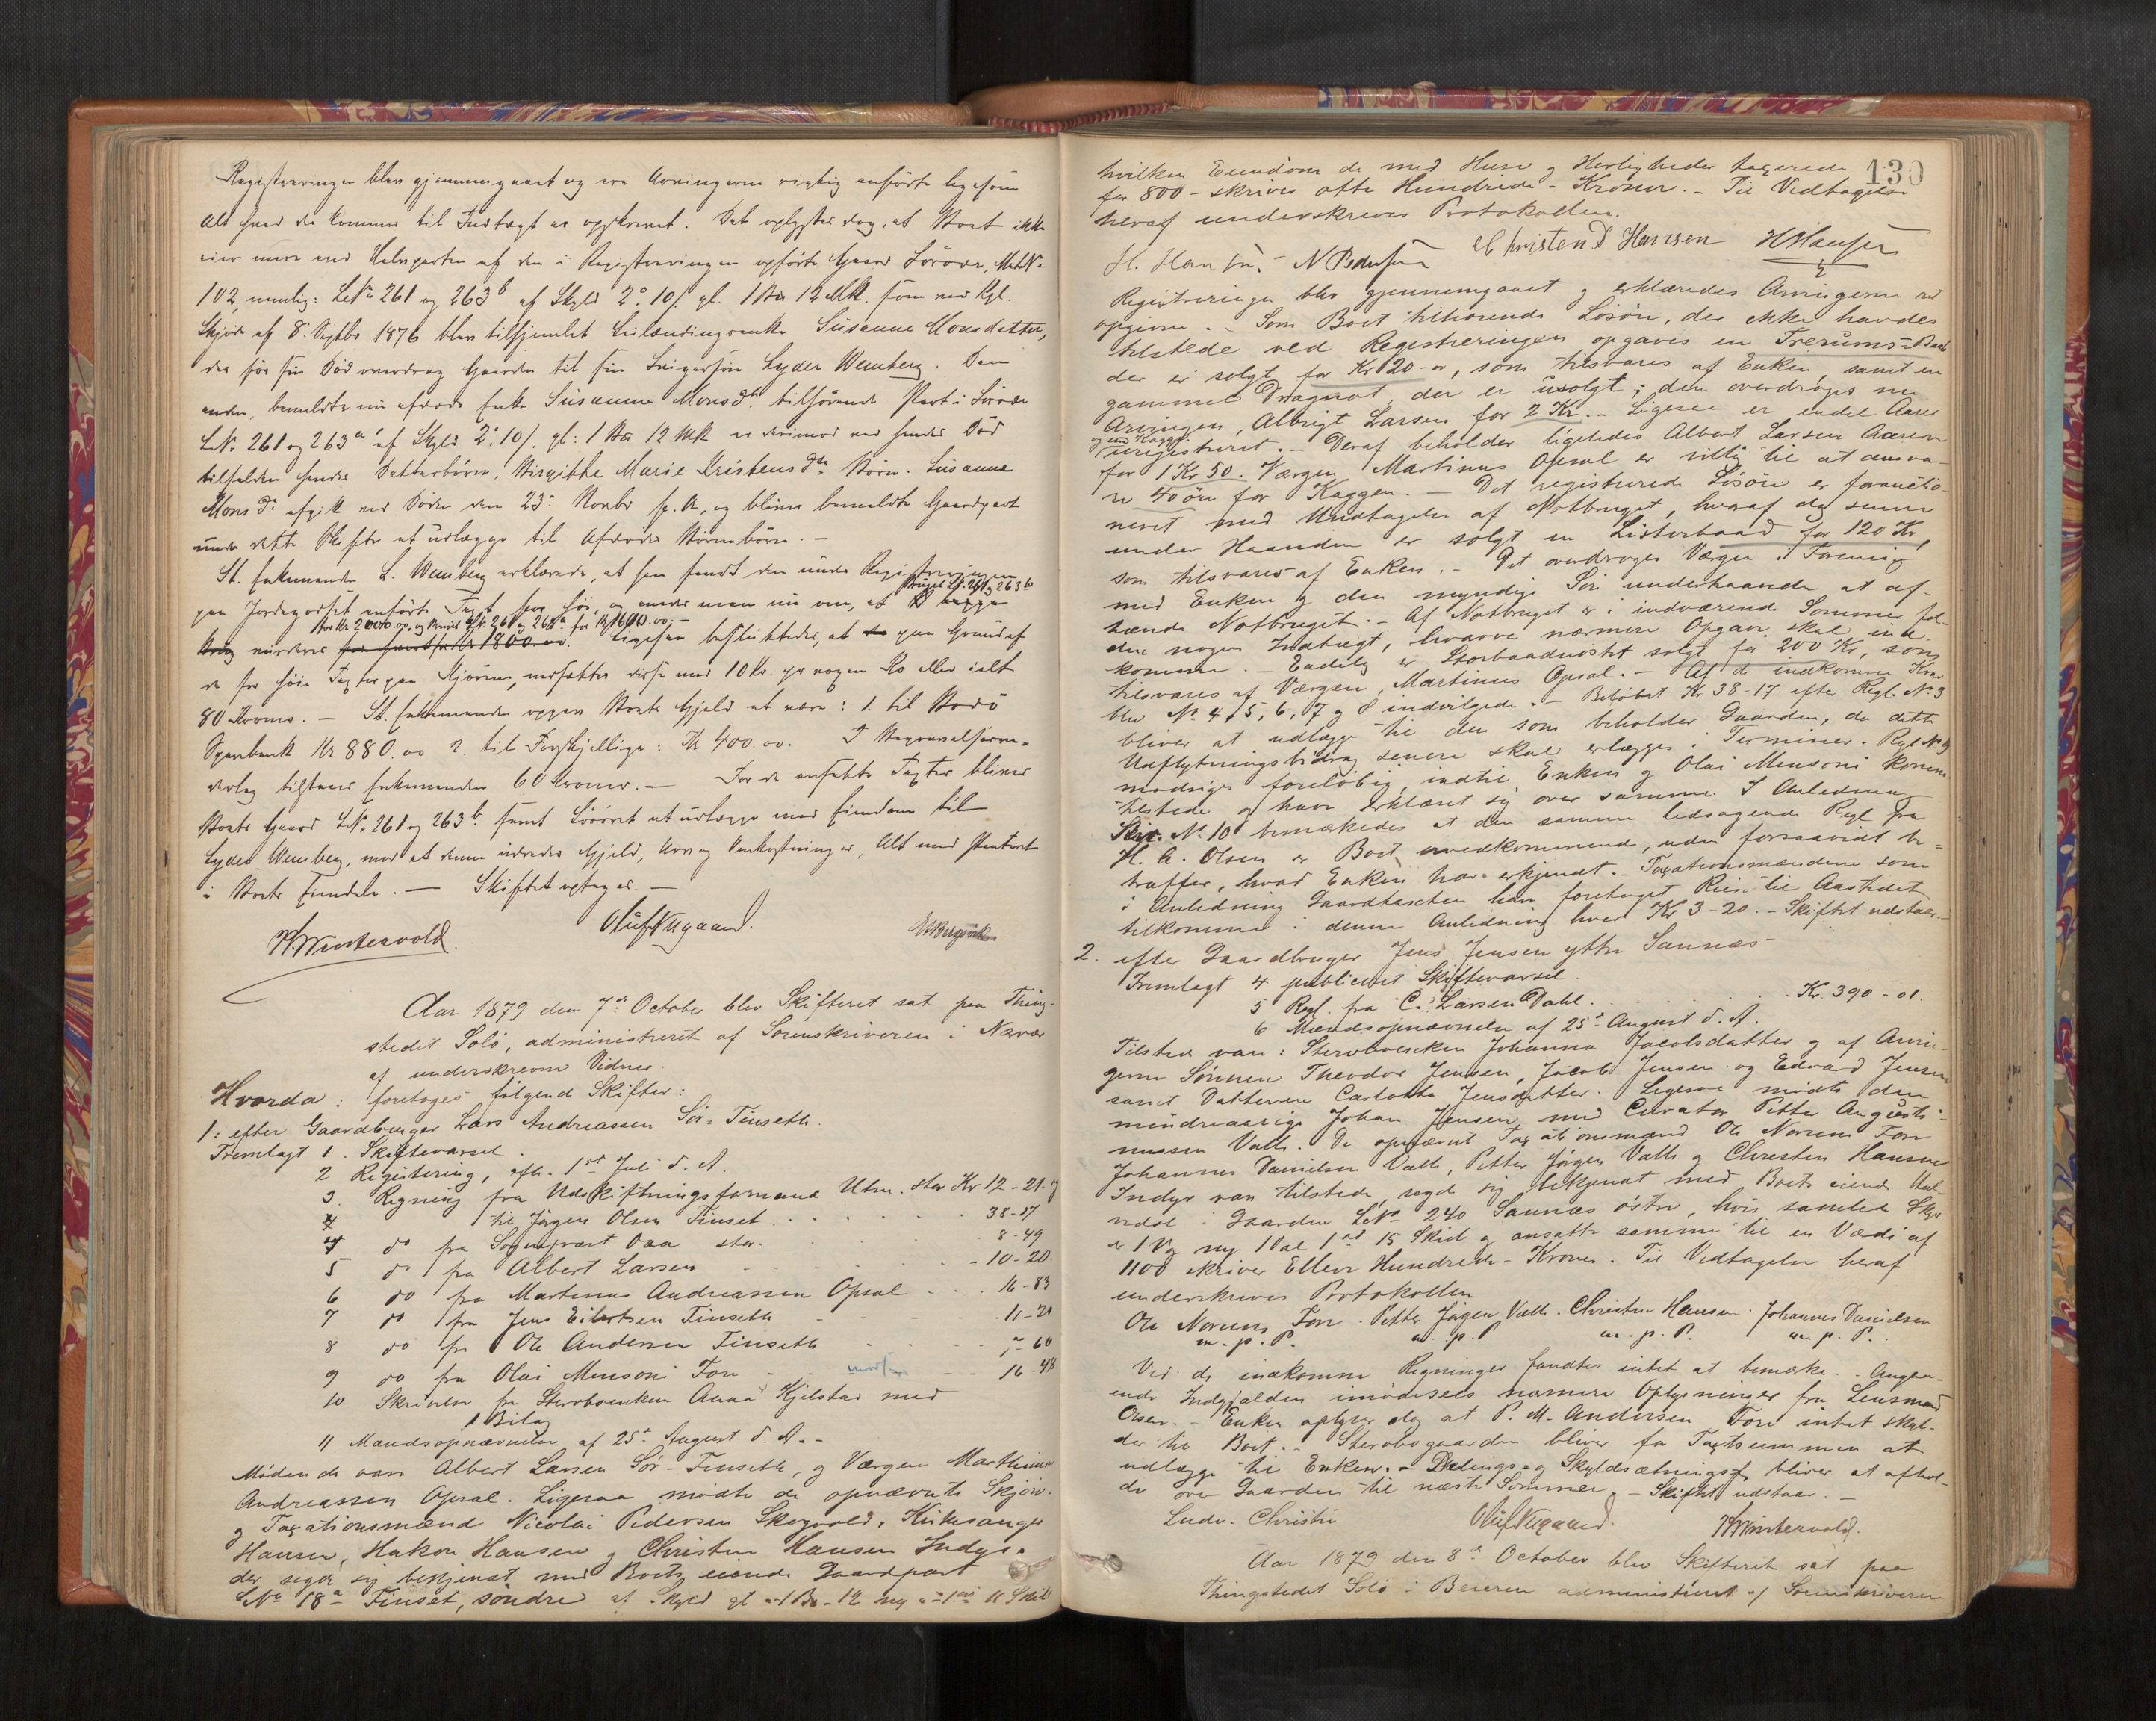 Registreringen blev gjennemgaaet og ere Arvingerne rigtig anførte ligesom
Alt hvad der kommer til Indtægt er opskrevet. Det oplystes dog, at Boet ikke
eier mere end Halvparten af den i Registreringen opførte Gaard Lørøde, Mat N.
102, nemlig: LNo 261 og 263 b af Skyld 2. 10/. gl. 1 12 Mk. som ved Kgl.
Skjøde af 8. Septbr 1876 blev tilskjødet Enke Susanne Monsdatter,
der før sin Død overdrog Gaarden til sin Svigersøn Lyder Wensberg. Den
anden, bemeldte nu afdøde Enke Susanne Monsdtr. tilhørende Part i Lørøde
LNr. 261 og 263 a af Skyld 2. 10/. gl: 1 12 Mk er derimod ved hendes Død
tilfalden hendes Datterbørn, Birgitte Marie Kristensdtr Børn. Susanne
Monsdtr afgik ved Døden den 23. Novbr f. A, og bliver bemeldte Gaardpart
under dette Skifte at udlægge til Afdødes Børnebørn. —
St. Enkemanden L. Wensberg erklærede, at han fandt den under Registreringen
Brüget LN. 261 og 263 b
paa Jordegodset anførte Taxt for høi, og enedes man nu om, at
for Kr 2000.00, og Bruget LN. 261 og 263 a for Kr 1600.00,-
vurderes for Kr 1800.00. Ligesaa besluttedes, at paa Grund af
de for høie Taxter paa Kjørene, nedsættes disse med 10 Kr. pr voxen Ko eller ialt
80 Kroner. — St. Enkemanden opgav Boets Gjeld at være: 1. til Bodø
Sparebank Kr 880.00 2. til Forskjellige: Kr 400.00. I Begravelsesom-
kostning tilstaaes Enkemanden 60 Kroner. — For de ansatte Taxter bliver
Boets Gaard LNr. 261 og 263 b. samt Løsøret at udlægge med Eiendom til
Lyder Wensberg, mod at denne udreder Gjeld, Arv og Omkostninger, Alt med Panteret
i Boets Eiendele. — Skiftet optages. —
H. Wintervold. Oluf Nygaard. E. Bergvik
Aar 1879 den 7de October blev Skifteret sat paa Thing-
stedet Solø, administreret af Sorenskriveren i Nærvær
af underskrevne Vidner.
Hvorda: foretoges følgende Skifter:
1: efter Gaardbruger Lars Andreassen Sør-Tinseth.
Fremlagt 1. Skiftevarsel.
2 Registering, afh. 1ste Juli d. A.
3. Regning fra Udskiftningsformand Utne. stor Kr 12-21. og
til Jørgen Olsen Tinset . . . 38-17
4 do fra Sogneprest Daa stor. 8-49
5 do fra Albert Larsen . . - 10-20.
6 do fra Martinus Andreassen Opsal . . . 16-83
7 do fra Jens Eilertsen Tinseth . . . 11-20
8 do fra Ole Andersen Tinseth . . . 1-60
9 do fra Olai Mensoni Fore . . . 16-48
10 Skrivelse fra Sterboenken Anna Kjelstad med
1 Bilag
11 Mændsopnævnelse af 25de August d. A.-
Mødende vare Albert Larsen Sør-Tinseth, og Værgen Marthinus
Andreassen Opsal. Ligesaa mødte de opnævnte Skjøn-
og Taxationsmænd Nicolai Pedersen Skogvold,
Hansen, Hakon Hansen og Christen Hansen Indyr.
der sagde sig bekjendt med Boets eiende Gaardpart
LNo 18 a Tinset, søndre af Skyld gl - 1 Bp - 12 ny 11 Skill
130
hvilken Eiendom de med Huse og Herligheder taxerede
for 800 - skriver otte Hundrede - Kroner. - Til Vedtagelse
heraf underskrives Protokollen.
H. Hansen. N Pedersen Christen Hansen H Hansen
Registreringen blev gjennemgaaet og erklæredes Arvingerne ret
opgivne. - Som Boet tilhørende Løsøre, der ikke havdes
tilstede ved Registreringen opgaves en Trerums-Baad
der er solgt for Kr 20-00, som tilsvares af Enken, samt en
gammel Dragnot, der er usolgt; den overdroges nu
Arvingen, Albrigt Larsen for 2 Kr. - Ligesaa er endel Aarer
og en Kagge
uregistreret. - Deraf beholder ligeledes Albert Larsen Aarerne
for 1 Kr 50. Værgen Martinus Opsal er villig til at ansva-
re 40 øre for Kaggen. - Det registrerede Løsøre er forauctio-
neret med Undtagelse af Notbruget, hveraf der senere
under Haanden er solgt en Listerbaad for 120 Kr,
som tilsvares af Enken. - Det overdroges Værgen i Forening
med Enken og den myndige Søn underhaanden at af-
hænde Notbruget. - Af Notbruget er i indeværende Sommer fal-
den nogen Indtægt, hvorom nærmere Opgave skal ind-
komme. - Endelig er Storbaadnøstet solgt for 200 Kr, som
tilsvares af Værgen, Martinus Opsal. - Af de indkomne Krav
blev No 4, 5, 6, 7 og 8 indvilgede. - Beløbet Kr 38-17 efter Regl. No 3
bliver at udlægge til den som beholder Gaarden, da dette
Udflytningsbidrag senere skal erlægges i Terminer. Regl No 9
modsiges foreløbig, indtil Enken og Olai Mensoni kommer
tilstede og have erklæret sig over samme. I Anledning
Skr. No. 10 bemærkedes at den samme ledsagende Regl fra
H. A. Olsen er Boet uvedkommende, uden forsaavidt be-
træffer, hvad Enken har erkjendt. - Taxationsmændene som
i Anledning Gaardtaxten have foretaget Reise til Aastedet
tilkomme i denne Anledning hver Kr 3-20. - Skiftet udstaar. -
2. efter Gaardbruger Jens Jensen yttre Sannæs -
Fremlagt 4 publiceret Skiftevarsel.
5 Regl. fra C. Larsen Dahl. . . . . Kr. 390-01.
6 Mændsopnævnelse af 25de August d. A.
Tilstede vare: Sterboenken Johanna Jacobsdatter og af Arvin-
gerne Sønnerne Theodor Jensen, Jacob Jensen og Edvard Jensen
samt Datteren Carlotta Jensdatter. Ligesaa mødte den
mindreaarige Johan Jensen med Curator Petter Augusti-
nussen Valle. De opnævnte Taxationsmænd Ole Norum Fore
Johannes Danielsen Valle, Petter Jørgen Valle og Christen Hansen
Indyr var tilstede, sagde sig bekjendt med Boets eiende Hal-
vdel i Gaarden LNo 240 Sannæs østre, hvis samlede Skyld
er 1 Vog ny 1 Dal 1 ort 15 Skill og ansatte samme til en Værdi af
1100 skriver Elleve Hundrede - Kroner. Til Vedtagelse heraf
underskrives Protokollen
Ole Norum Fore. Petter Jørgen Valle. Christen Hansen. Johannes Danielsen
m. p. P. m. p. P m. p. P. m. p. P.
Ved de indkomne Regninger fandtes intet at bemærke. - Angaa-
ende Indgjælden imødesees nærmere Oplysninger fra Lensmand
Olsen. - Enken oplyser dog at P. M. Andersen Fore intet skyl-
der til Boet. - Sterbogaarden bliver for Taxtsummen at
udlægge til Enken. - Delings- og Skyldsætningsf. bliver at afhol-
de over Gaarden til næste Sommer. - Skiftet udstaar. -
Ludv. Christie Oluf Nygaard. H Wintervold.
Aar 1879 den 8de October blev Skifteret sat paa
Thingstedet Solø i Beieren administreret af Sorenskriveren